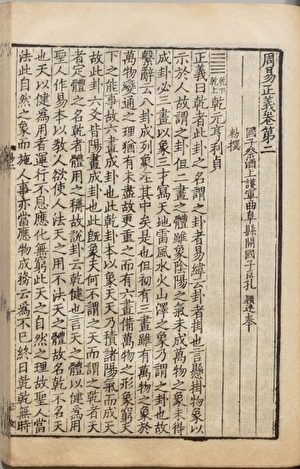 周易正義卷第二
國子祭酒上護軍曲阜縣開國子臣孔 穎達奉
勑撰
䷀乾下乾上乾元亨利貞
正義曰乾者此卦之名謂之卦者易緯云卦者掛也言懸掛物象以
示於人故謂之卦但二畫之體雖象陰陽之氣未成萬物之象未得
成卦必三畫以象三才寫天地雷風水火山澤之象乃謂之卦也故
繫辭云八卦成列象在其中矣是也但初有三畫雖有萬物之象於
萬物變通之理猶有未盡故更重之而有六畫備萬物之形象窮天
下之能事故六畫成卦也此乾卦本以象天天乃積諸陽氣而成天
故此卦六爻皆陽畫成卦也此既象天何不謂之天而謂之乾者天
者定體之名乾者體用之稱故說卦云乾健也言天之體以健為用
聖人作易本以教人欲使人法天之用不法天之體故名乾不名天
也天以健為用者運行不息應化無窮此天之自然之理故聖人當
法此自然之象而施人事亦當應物成務云為不已終日乾乾無時